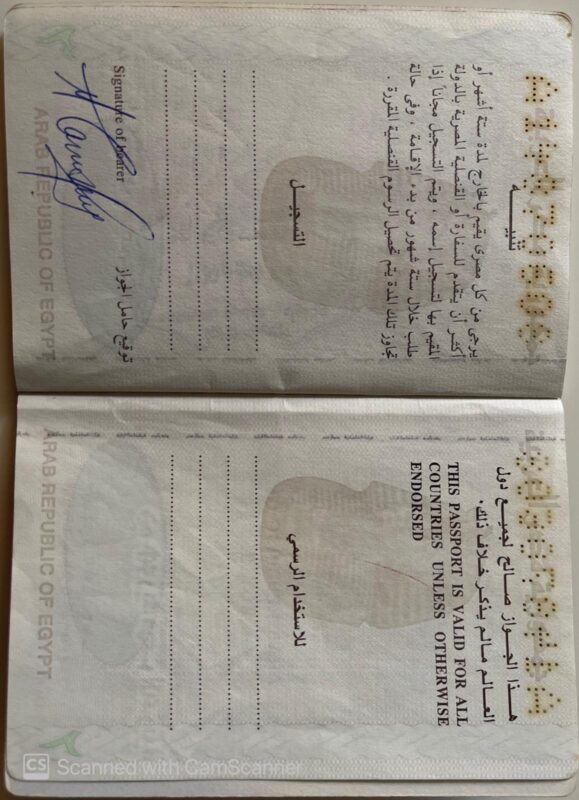 تنبيـــه
يرجى من كل مصرى يقيم بالخارج لمدة ستة أشهر أو
أكثر أن يتقدم للسفارة أو القنصلية المصرية بالدولة
المقيم بها لتسجيل إسمه ، ويتم التسجيل مجاناً إذا
طلب خلال ستة شهور من بدء الإقامة ، وفى حالة
تجاوز تلك المدة يتم تحصيل الرسوم القنصلية المقررة .
التسجيـــل
Signature of bearer
توقيع حامل الجواز
ARAB REPUBLIC OF EGYPT
هـذا الجـواز صـالح لجميـع دول
العـالم مـالم يـذكر خـلاف ذلك.
THIS PASSPORT IS VALID FOR ALL
COUNTRIES UNLESS OTHERWISE
ENDORSED
للاستخدام الرسمي
ARAB REPUBLIC OF EGYPT
CS Scanned with CamScanner